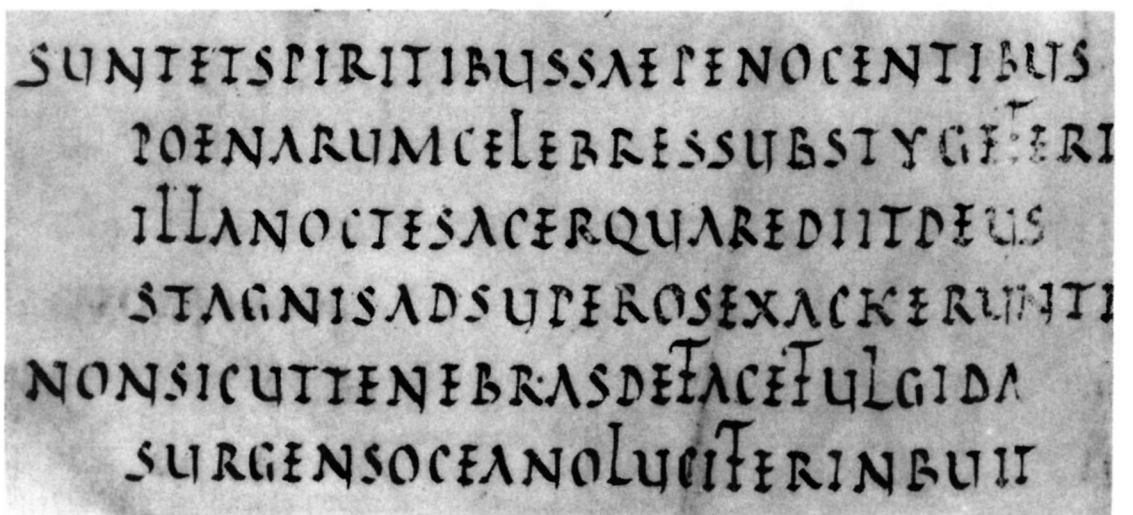 SUNTETSPIRITIBUSSAEPENOCENTIBUS
POENARUMCELEBRESSUBSTYGEFERI
ILLANOCTESACERQUAREDIITDEUS
STAGNISADSUPEROSEXACHERUNTI
NONSICUTTENEBRASDEFACEFULGIDA
SURGENSOCEANOLUCIFERINBUIT